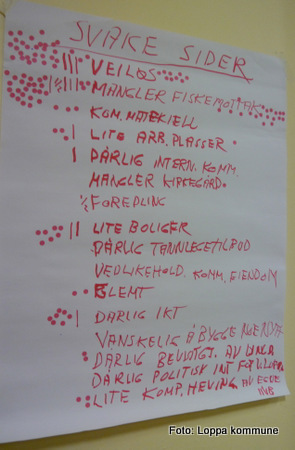 SVAKE SIDER
VEILØS
MANGLER FISKEMOTTAK
KOM. MATERIELL
LITE ARB. PLASSER
DÅRLIG INTERN. KOMM.
MANGLER KIRKEGÅRD
FOREDLING
LITE BOLIGER
DÅRLIG TANNLEGETILBOD
VEDLIKEHOLD. KOMM. EIENDOM
GLEMT
DÅRLIG IKT
VANSKELIG Å BYGGE
DÅRLIG BEVILGT. AV
DÅRLIG POLITISK INT FOR
LITE KOMP. HEVING AV EGEE
Foto: Loppa kommune